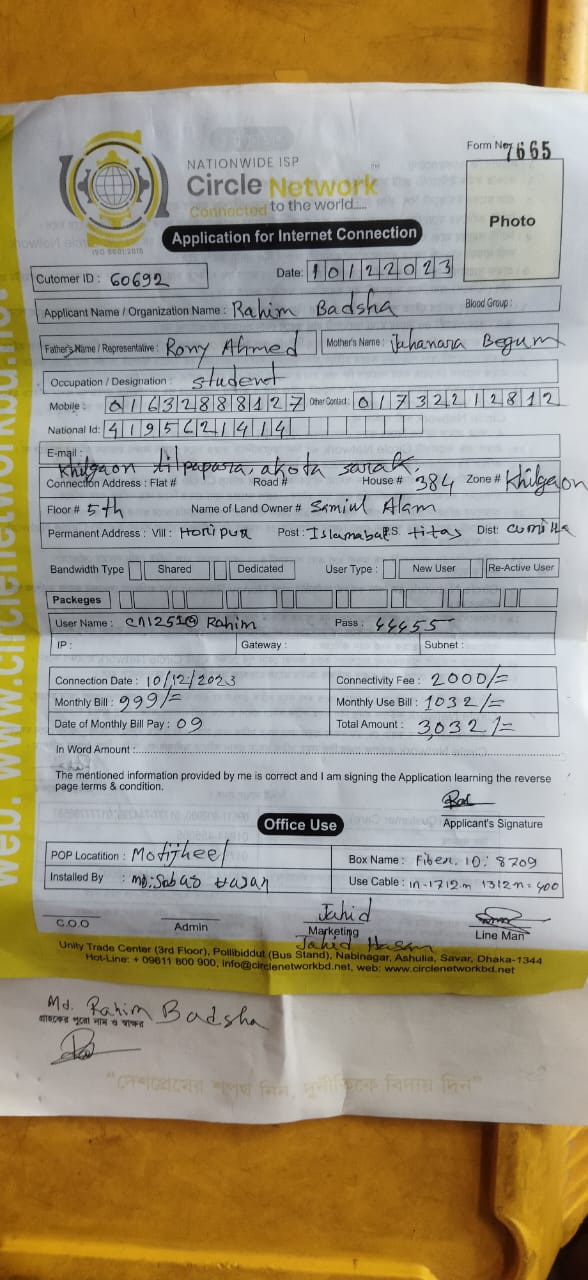 Form No. 7665
NATIONWIDE ISP
Circle Network
Connected to the world.....
ISO 9001:2015
Application for Internet Connection
Photo
Cutomer ID : 60692
Date: 10122023
Applicant Name / Organization Name : Rahim Badsha Blood Group :
Father's Name / Representative : Rony Ahmed Mother's Name : Jahanara Begum
Occupation / Designation : student
Mobile : 01632888127 Other Contact : 01732212812
National Id: 4195621414
E-mail :
Khilgaon tilpapara, akota sarak,
Connection Address : Flat # Road # House # 384 Zone # Khilgaon
Floor # 5th Name of Land Owner # Samiul Alam
Permanent Address : Vill : Honipur Post : Islamabad P.S. titas Dist: cumilla
Bandwidth Type Shared Dedicated User Type : New User Re-Active User
Packeges
User Name : Rahim Pass : 44455
IP : Gateway : Subnet :
Connection Date : 10/12/2023 Connectivity Fee : 2000/=
Monthly Bill : 999/= Monthly Use Bill : 1032/=
Date of Monthly Bill Pay : 09 Total Amount : 3,032/=
In Word Amount :
The mentioned information provided by me is correct and I am signing the Application learning the reverse
page terms & condition.
Applicant's Signature
Office Use
POP Locatition : Motijheel Box Name : Fiber. 10: 8709
Installed By : md: Hasan Use Cable : in-1712m 1312 = 400
C.O.O Admin Jahid Marketing Line Man
Jahid Hasan
Unity Trade Center (3rd Floor), Pollibiddut (Bus Stand), Nabinagar, Ashulia, Savar, Dhaka-1344
Hot-Line: + 09611 800 900, info@circlenetworkbd.net, web: www.circlenetworkbd.net
Md. Rahim Badsha
গ্রাহকের পুরো নাম ও স্বাক্ষর
"দেশপ্রেমের শপথ নিন, দুর্নীতিকে বিদায় দিন"
web: www.circlenetworkbd.net